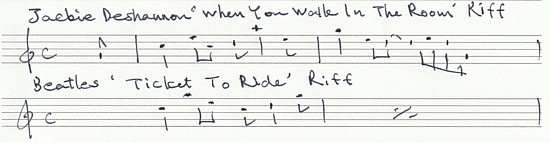 Jackie Deshannon 'When You Walk In The Room' Riff
Beatles 'Ticket To Ride' Riff